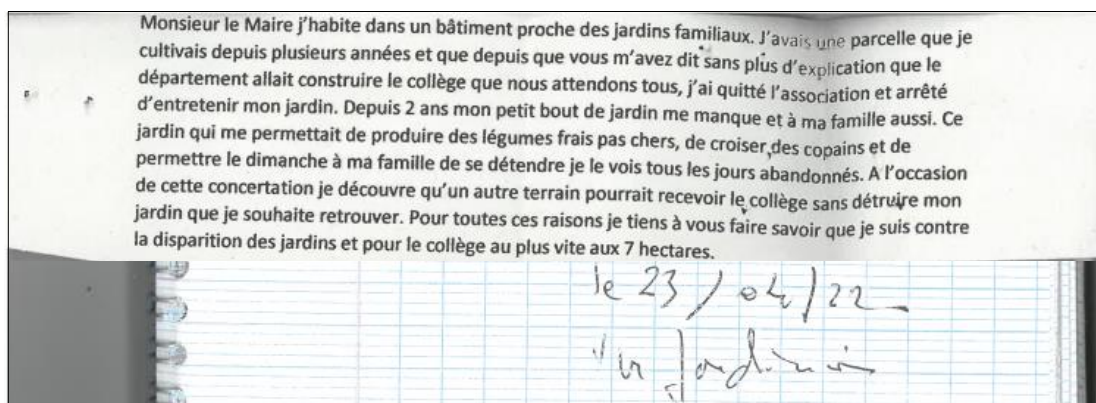 Monsieur le Maire j'habite dans un bâtiment proche des jardins familiaux. J'avais une parcelle que je
cultivais depuis plusieurs années et que depuis que vous m'avez dit sans plus d'explication que le
département allait construire le collège que nous attendons tous, j'ai quitté l'association et arrêté
d'entretenir mon jardin. Depuis 2 ans mon petit bout de jardin me manque et à ma famille aussi. Ce
jardin qui me permettait de produire des légumes frais pas chers, de croiser des copains et de
permettre le dimanche à ma famille de se détendre je le vois tous les jours abandonnés. A l'occasion
de cette concertation je découvre qu'un autre terrain pourrait recevoir le collège sans détruire mon
jardin que je souhaite retrouver. Pour toutes ces raisons je tiens à vous faire savoir que je suis contre
la disparition des jardins et pour le collège au plus vite aux 7 hectares.
le 23/04/22
Un Jardinier